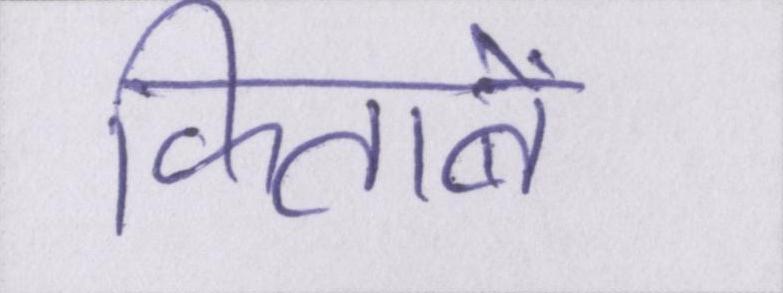 किताबें